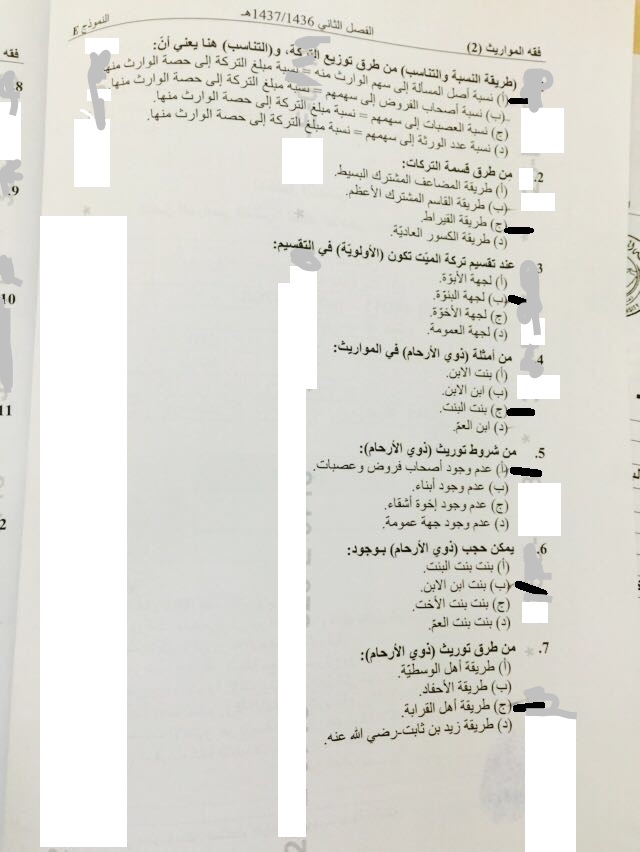 فقه المواريث (2)
الفصل الثاني 1437/1436هـ
النموذج E
(طريقة النسبة والتناسب) من طرق توزيع التركة، و(التناسب) هنا يعني أنّ:
(أ) نسبة أصل المسألة إلى سهم الوارث منه = نسبة مبلغ التركة إلى حصة الوارث منها.
(ب) نسبة أصحاب الفروض إلى سهمهم = نسبة مبلغ التركة إلى حصة الوارث منها.
(ج) نسبة العصبات إلى سهمهم = نسبة مبلغ التركة إلى حصة الوارث منها.
(د) نسبة عدد الورثة إلى سهمهم = نسبة مبلغ التركة إلى حصة الوارث منها.
2. من طرق قسمة التركات:
(أ) طريقة المضاعف المشترك البسيط.
(ب) طريقة القاسم المشترك الأعظم.
(ج) طريقة القيراط.
(د) طريقة الكسور العاديّة.
3 عند تقسيم تركة الميّت تكون (الأولويّة) في التقسيم:
(أ) لجهة الأبوّة.
(ب) لجهة البنوّة.
(ج) لجهة الأخوّة.
(د) لجهة العمومة.
4. من أمثلة (ذوي الأرحام) في المواريث:
(أ) بنت الابن.
(ب) ابن الابن.
(ج) بنت البنت.
(د) ابن العمّ.
5. من شروط توريث (ذوي الأرحام):
(أ) عدم وجود أصحاب فروض وعصبات.
(ب) عدم وجود أبناء.
(ج) عدم وجود إخوة أشقاء.
(د) عدم وجود جهة عمومة.
6. يمكن حجب (ذوي الأرحام) بـوجود:
(أ) بنت بنت البنت.
(ب) بنت ابن الابن.
(ج) بنت بنت الأخت.
(د) بنت بنت العمّ.
7. من طرق توريث (ذوي الأرحام):
(أ) طريقة أهل الوسطيّة.
(ب) طريقة الأحفاد.
(ج) طريقة أهل القرابة.
(د) طريقة زيد بن ثابت-رضي الله عنه.
فقه
8
9.
10
11
2